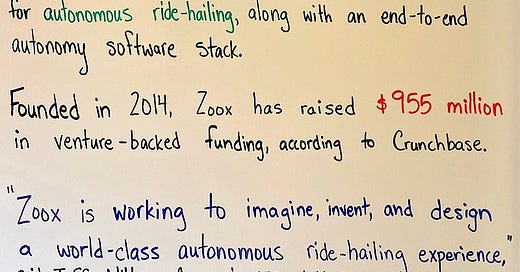 for autonomous ride-hailing, along with an end-to-end
autonomy software stack.
Founded in 2014, Zoox has raised $955 million
in venture-backed funding, according to Crunchbase.
"Zoox is working to imagine, invent, and design
a world-class autonomous ride-hailing experience,"